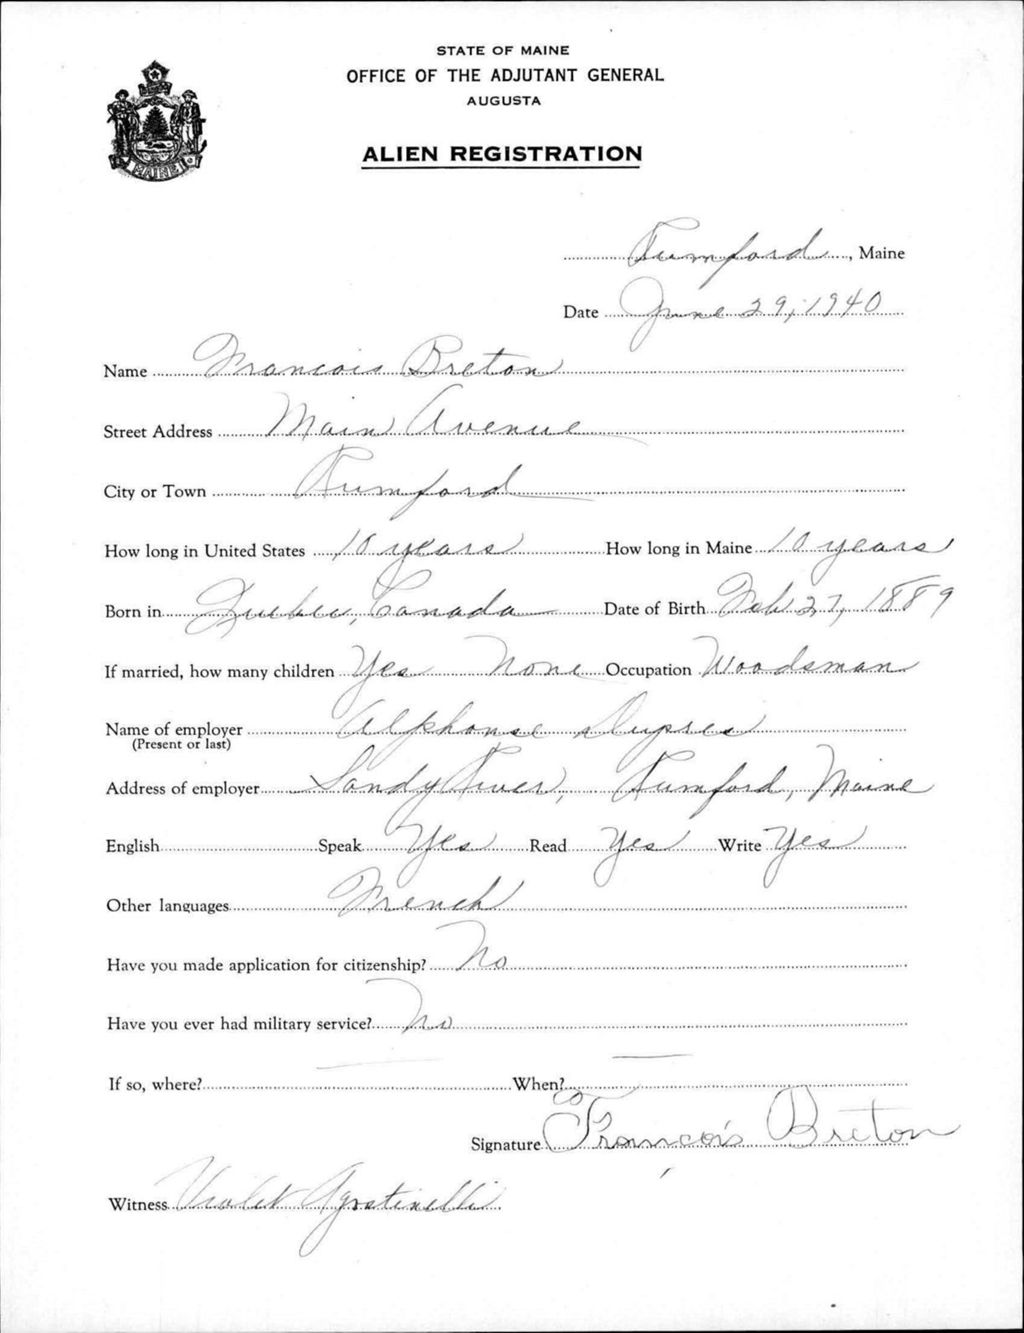 STATE OF MAINE
OFFICE OF THE ADJUTANT GENERAL
AUGUSTA
ALIEN REGISTRATION
MAINE
Rumford, Maine
Date June 29, 1940
Name Francois Breton
Street Address Main Avenue
City or Town Rumford
How long in United States 10 years How long in Maine 10 years
Born in Quebec, Canada Date of Birth Feb 27, 1889
If married, how many children Yes None Occupation Woodsman
Name of employer Alphonse Dupres
(Present or last)
Address of employer Sandy River, Rumford, Maine
English Speak Yes Read Yes Write Yes
Other languages French
Have you made application for citizenship? No
Have you ever had military service? No
If so, where? — When? —
Signature Francois Breton
Witness Violet Agostinelli